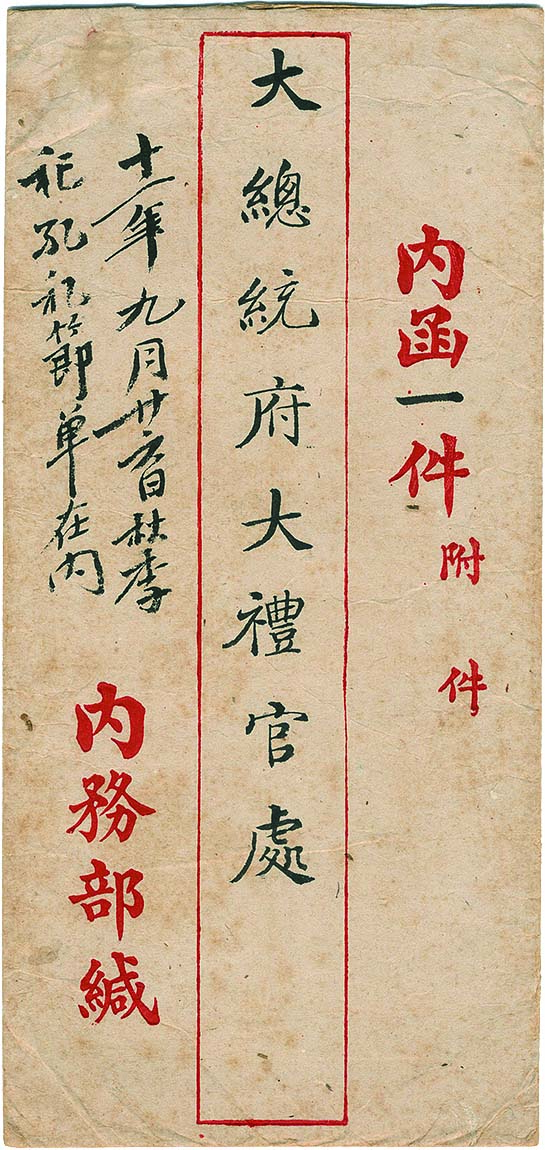 内函一件附件
大總統府大禮官處
十一年九月廿六日秋季
祀孔礼節单在内
内務部緘